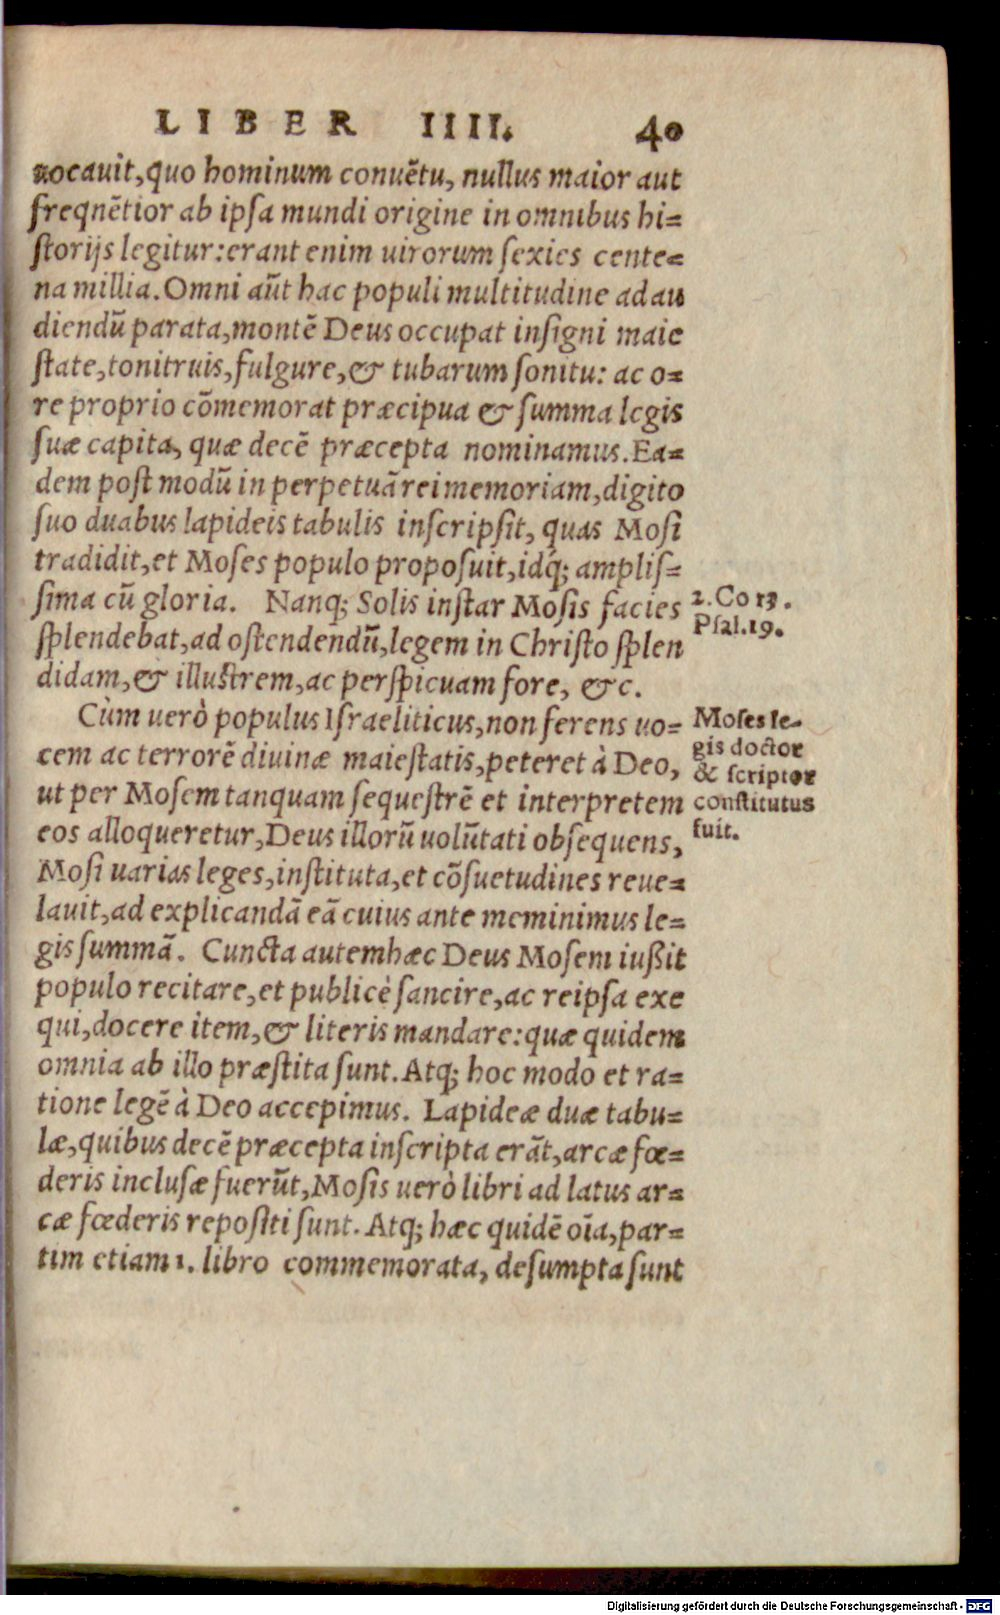 LIBER IIII. 40
uocauit, quo hominum conuētu, nullus maior aut
freqnētior ab ipsa mundi origine in omnibus hi=
storijs legitur: erant enim uirorum sexies cente=
na millia. Omni aūt hac populi multitudine ad au
diendū parata, montē Deus occupat insigni maie
state, tonitruis, fulgure, & tubarum sonitu: ac o=
re proprio cōmemorat præcipua & summa legis
suæ capita, quæ decē præcepta nominamus. Ea=
dem post modū in perpetuā rei memoriam, digito
suo duabus lapideis tabulis inscripsit, quas Mosi
tradidit, et Moses populo proposuit, idq́; amplis=
sima cū gloria. Nanq; Solis instar Mosis facies
splendebat, ad ostendendū, legem in Christo splen
didam, & illustrem, ac perspicuam fore, &c.
2. Co 13.
Psal. 19.
Cùm uerò populus Israeliticus, non ferens uo=
cem ac terrorē diuinæ maiestatis, peteret à Deo,
ut per Mosem tanquam sequestrē et interpretem
eos alloqueretur, Deus illorū uolūtati obsequens,
Mosi uarias leges, instituta, et cōsuetudines reue=
lauit, ad explicandā eā cuius ante meminimus le=
gis summā. Cuncta autem hæc Deus Mosem iußit
populo recitare, et publicè sancire, ac reipsa exe
qui, docere item, & literis mandare: quæ quidem
omnia ab illo præstita sunt. Atq; hoc modo et ra=
tione legē à Deo accepimus. Lapideæ duæ tabu=
læ, quibus decē præcepta inscripta erāt, arcæ fœ=
deris inclusæ fuerūt, Mosis uerò libri ad latus ar=
cæ fœderis repositi sunt. Atq; hæc quidē oīa, par=
tim etiam 1. libro commemorata, desumpta sunt
Moses le-
gis doctor
& scriptor
constitutus
fuit.
Digitalisierung gefördert durch die Deutsche Forschungsgemeinschaft - DFG